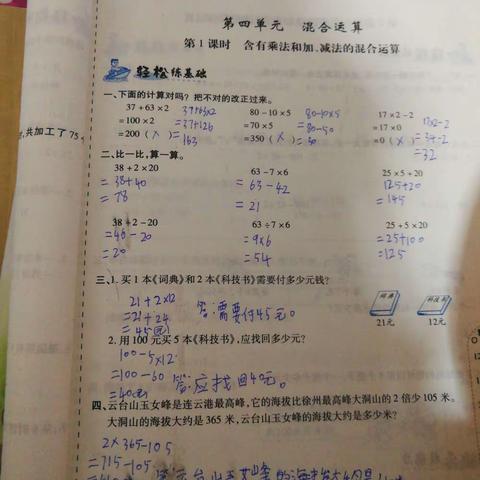 第四单元 混合运算
第1课时 含有乘法和加、减法的混合运算
轻松练基础
一、下面的计算对吗？把不对的改正过来。
37+63×2 37+63×2 80-10×5 80-10×5 17×2-2 17×2-2
=100×2 =37+126 =70×5 =80-50 =17×0 =34-2
=200(×) =163 =350(×) =30 =0(×) =32
，共加工了75
二、比一比，算一算。
38+2×20 63-7×6 25×5+20
=38+40 =63-42 125+20
=78 =21 =145
38+2-20 63÷7×6 25+5×20
=40-20 =9×6 =25+100
=20 =54 =125
三、1. 买1本《词典》和2本《科技书》需要付多少元钱？
21+2×12
=21+24 答：需要付45元。
=45(元)
词典 科技书
21元 12元
2. 用100元买5本《科技书》，应找回多少元？
100-5×12
=100-60 答：应找回40元。
=40(元)
四、云台山玉女峰是连云港最高峰，它的海拔比徐州最高峰大洞山的2倍少105米。
大洞山的海拔大约是365米，云台山玉女峰的海拔大约是多少米？
2×365-105
=715-105
答：云台山玉女峰的海拔大约是